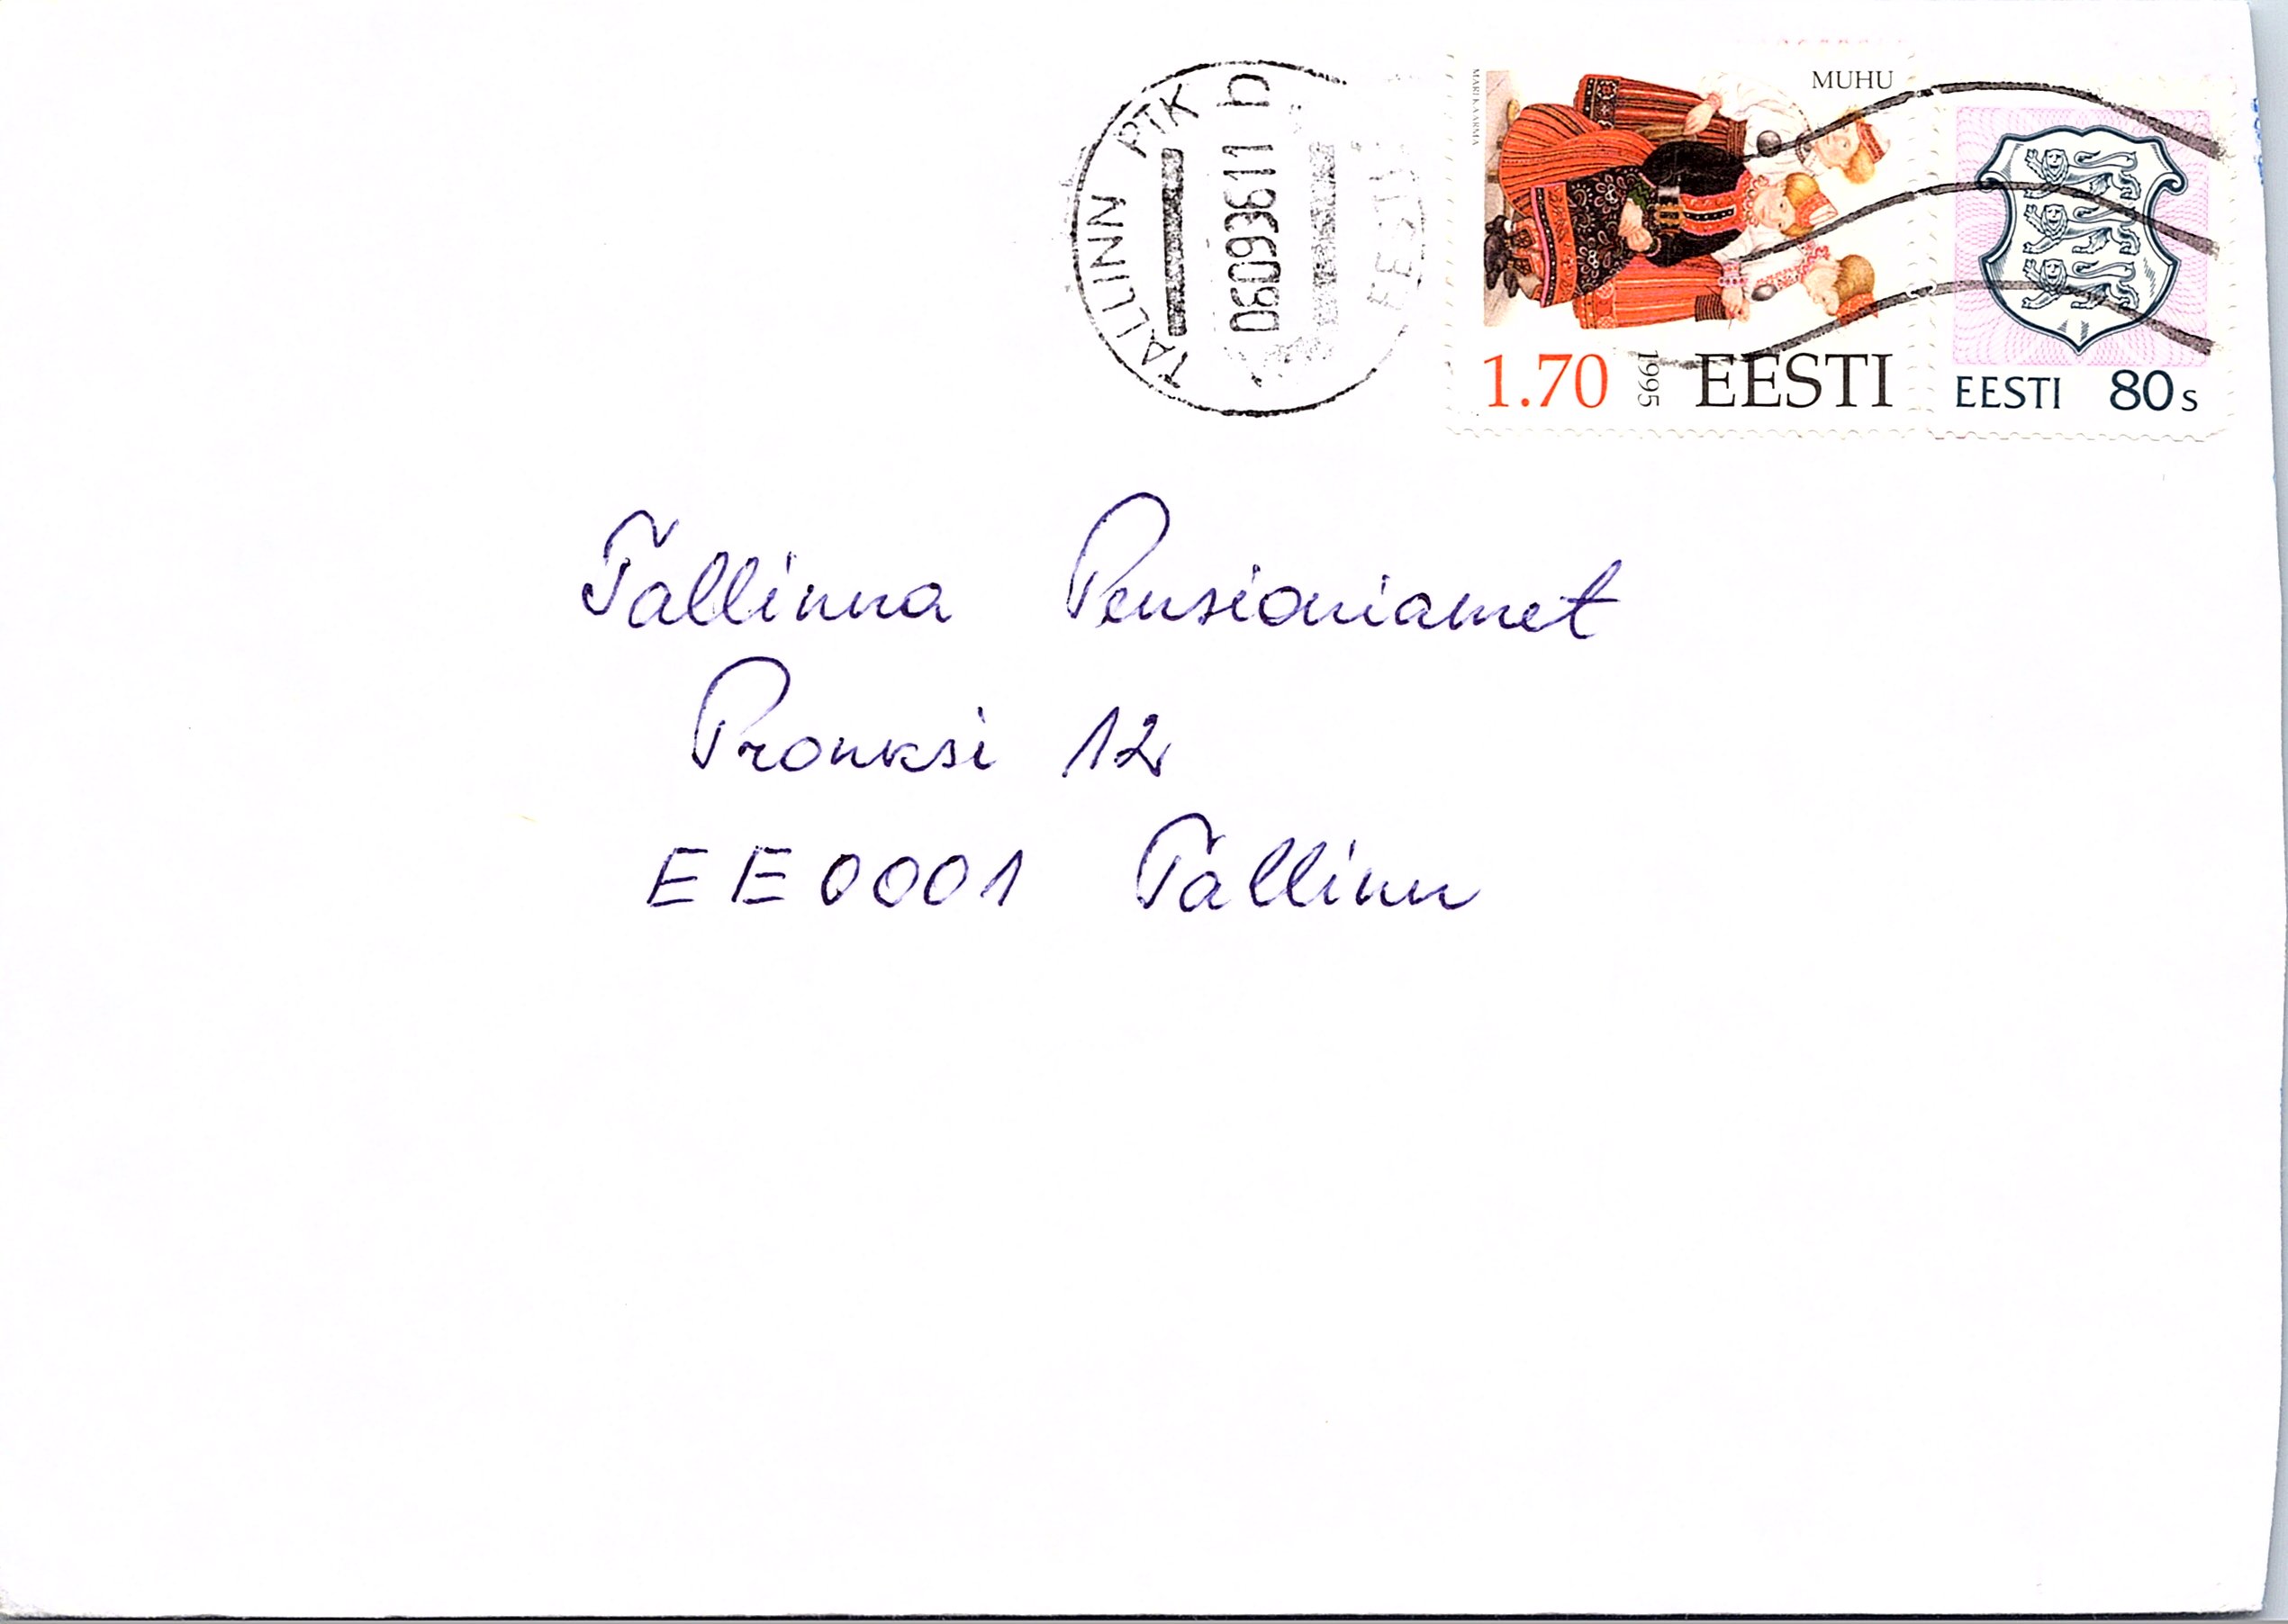 TALLINN PTK
06099611 b
EESTI
MARI KAARMA
MUHU
1.70 1995 EESTI
EESTI 80s
Tallinna Pensioniamet
Pronksi 12
EE0001 Tallinn